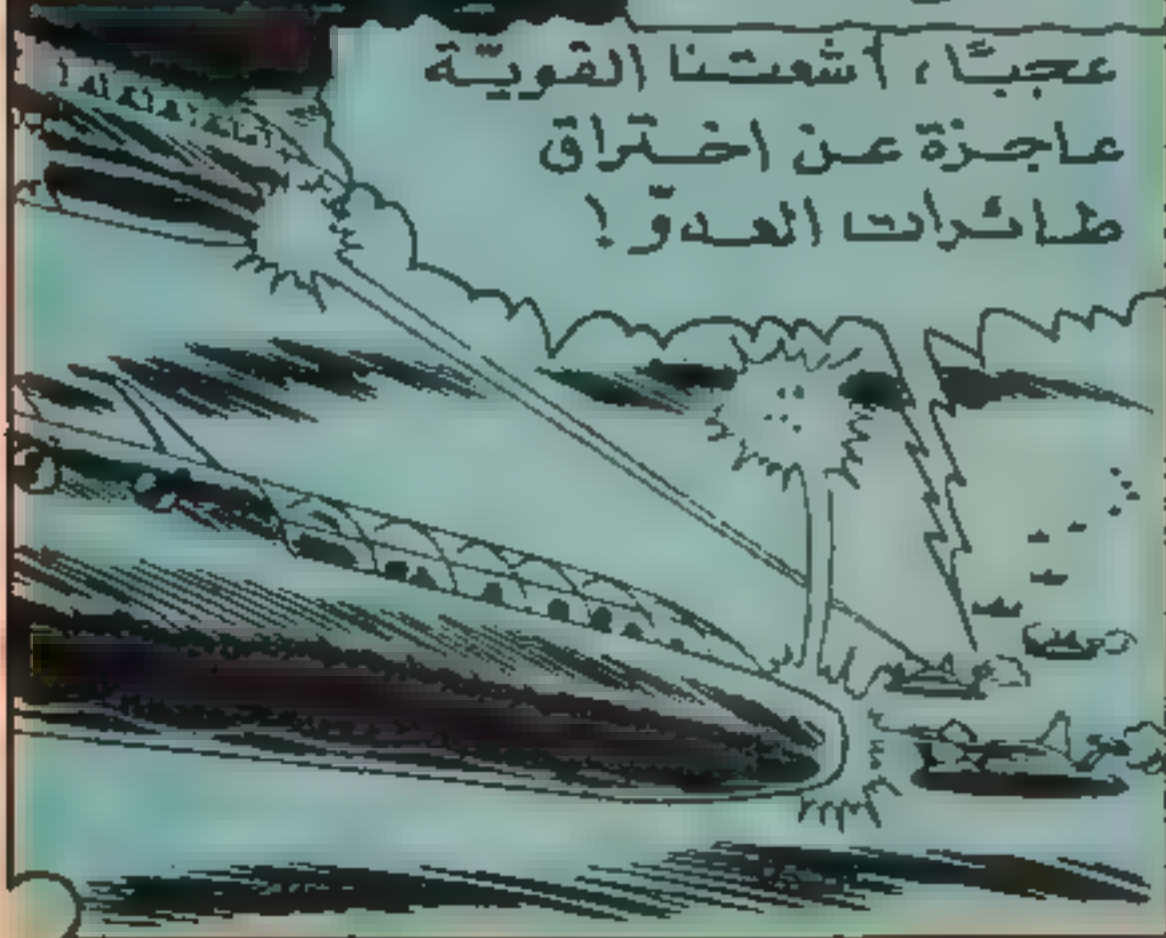 عجبًا، أشعتنا القويّة
عاجزة عن اختراق
طائرات العدوّ!